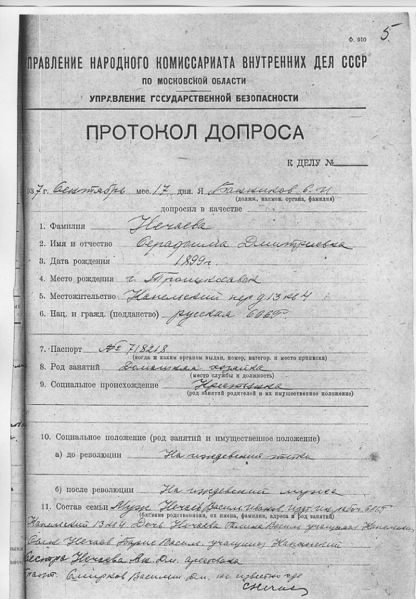 Ф. 910
5.
УПРАВЛЕНИЕ НАРОДНОГО КОМИССАРИАТА ВНУТРЕННИХ ДЕЛ СССР
ПО МОСКОВСКОЙ ОБЛАСТИ
УПРАВЛЕНИЕ ГОСУДАРСТВЕННОЙ БЕЗОПАСНОСТИ
ПРОТОКОЛ ДОПРОСА
К ДЕЛУ №
37 г. Сентябрь мес. 17 дня. Я
(должн., наимен. органа, фамилия)
допросил в качестве
1. Фамилия Нечаева
2. Имя и отчество Серафима Дмитриевна
3. Дата рождения 1899 г
4. Место рождения г. Троицкосавск
5. Местожительство пер д 13 кв 4
6. Нац. и гражд. (подданство) русская
7. Паспорт № 718218
(когда и каким органом выдан, номер, категор. и место прописки)
8. Род занятий Домашняя хозяйка
(место службы и должность)
9. Социальное происхождение
(род занятий родителей и их имущественное положение)
10. Социальное положение (род занятий и имущественное положение)
а) до революции На иждевении отца
б) после революции На иждевении мужа
11. Состав семьи Муж Нечаев
(близкие родственники, их имена, фамилии, адреса и род занятий)
13 кв 4 Дочь Нечаева учащаяся
Нечаев учащийся
Сестра Нечаева арестована
Смирнов Василий Дм. не известно где